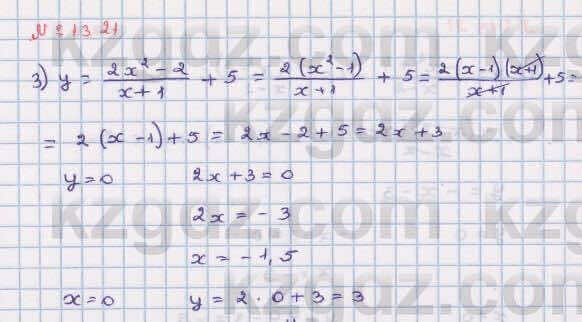 № 2 13 21
3) y = \frac{2x² - 2}{x + 1} + 5 = \frac{2(x² - 1)}{x + 1} + 5 = \frac{2(x - 1)(x + 1)}{x + 1} + 5 =
= 2(x - 1) + 5 = 2x - 2 + 5 = 2x + 3
y = 0 2x + 3 = 0
2x = - 3
x = - 1,5
x = 0 y = 2 · 0 + 3 = 3
kzgaz.com
kzgaz.com
kzgaz.com